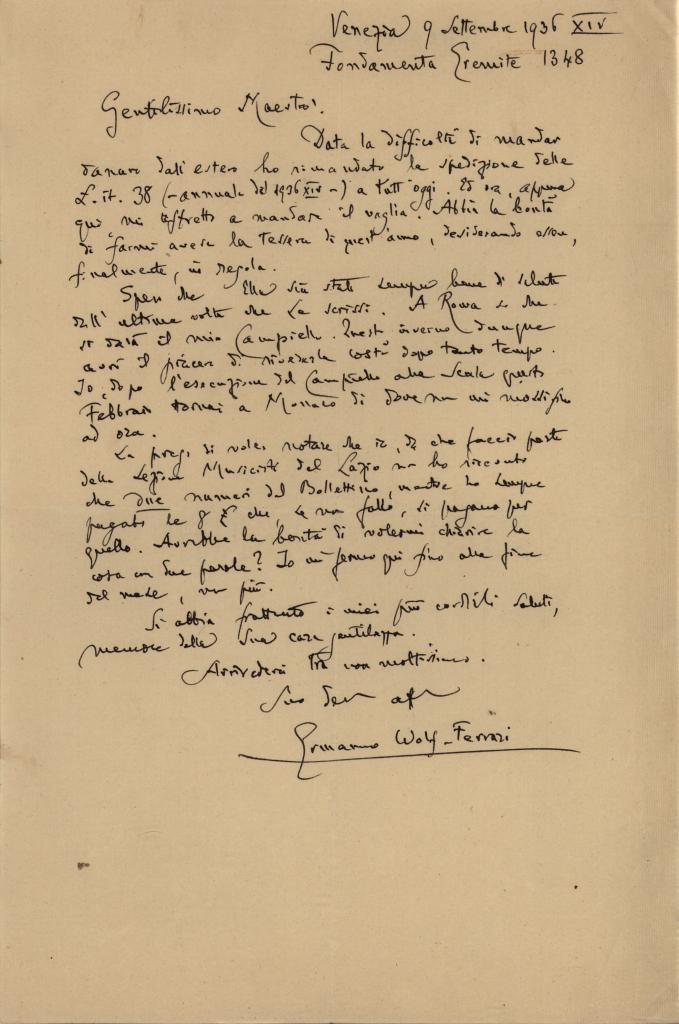 Venezia 9 Settembre 1936 XIV
Fondamenta Eremite 1348
Gentilissimo Maestro.
Data la difficoltà di mandar
danaro dall'estero ho rimandato la spedizione delle
L. it. 38 (-annuale del 1936 XIV-) a tutt'oggi. Ed ora, appena
qui mi affretto a mandare il vaglia. Abbia la bontà
di farmi avere la tessera di quest'anno, desiderando essere,
finalmente, in regola.
Spero che Ella sia stato sempre bene di salute
dall'ultima volta che Le scrissi. A Roma so che
si darà il mio Campiello. Quest'inverno dunque
avrò il piacere di rivederla costì dopo tanto tempo.
Io, dopo l'esecuzione del Campiello alla Scala questo
Febbraio tornai a Monaco di dove non mi mossi fino
ad ora.
La prego di voler notare che io, da che faccio parte
della Legione Musicisti del Lazio non ho ricevuto
che due numeri del Bollettino, mentre ho sempre
pagato le 8 £ che, se non fallo, si pagano per
quello. Avrebbe la bontà di volermi chiarire la
cosa con due parole? Io mi fermo qui fino alla fine
del mese, non più.
Si abbia frattanto i miei più cordiali saluti,
memore della Sua cara gentilezza.
Arrivederci tra non moltissimo.
Suo
Ermanno Wolf-Ferrari